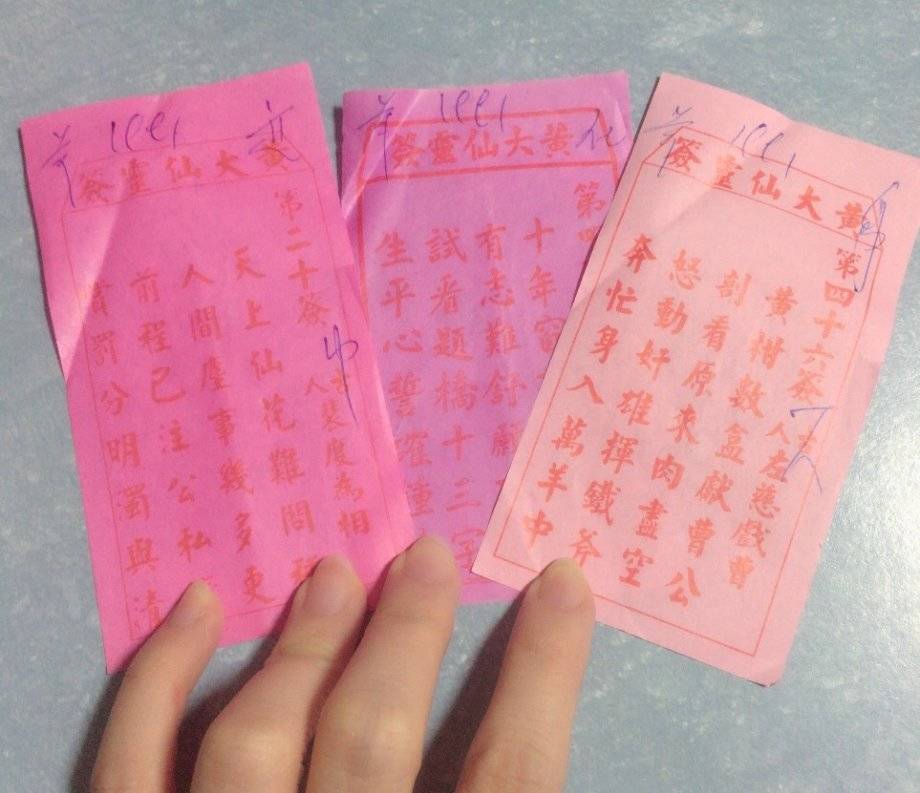 黃大仙靈簽
第二十簽
人裴度為相
天上仙花難問
人間塵事幾多更
前程已注公私
賞罰分明濁與清
黃大仙靈簽
第四
十年窗
有志難舒願
試看題橋十三字
生平心誓確
黃大仙靈簽
第四十六簽
人左慈戲曹
黃柑數盒獻曹公
剖看原來肉盡空
怒動奸雄揮鐵斧
奔忙身入萬羊中